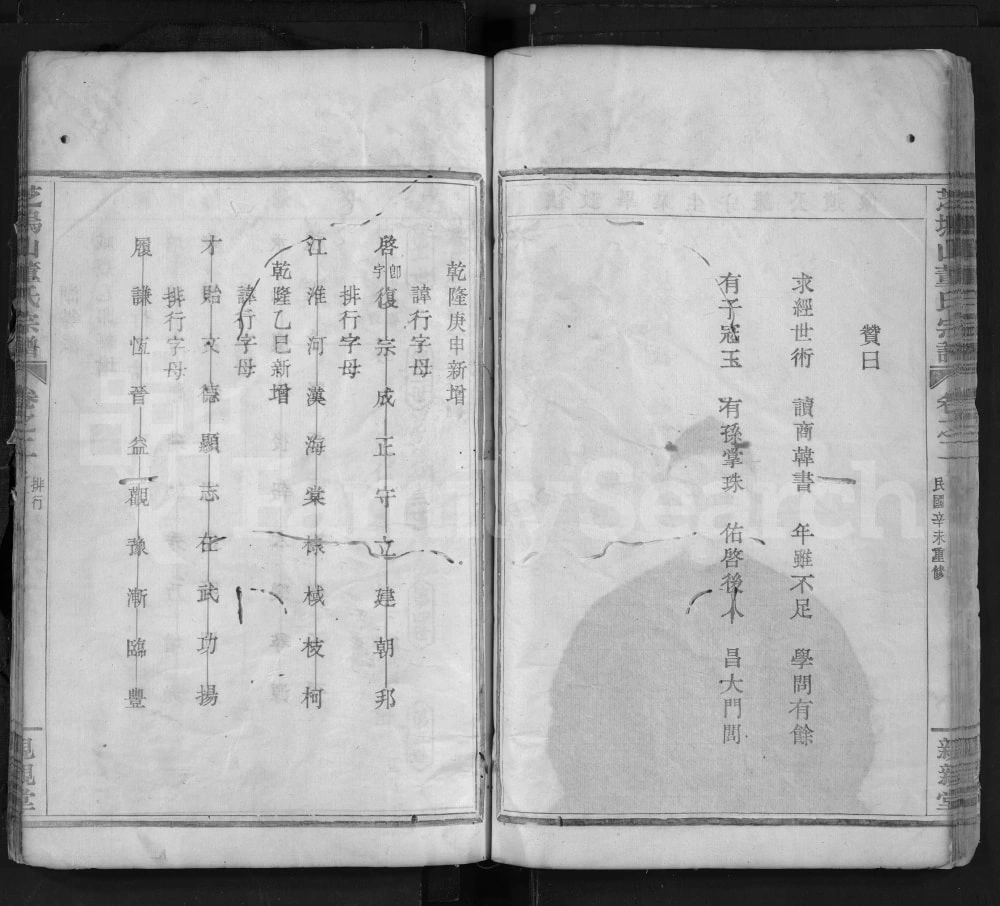 贊曰
求經世術　讀商韓書　年雖不足　學問有餘
有子冠玉　有孫掌珠　佑啓後人　昌大門閭
民國辛未重修
乾隆庚申新增
諱行字母
啓卽字復宗成正守立建朝邦
排行字母
江淮河漢海棠棣棫枝柯
乾隆乙巳新增
諱行字母
才貽文德顯志在武功揚
排行字母
履謙恆晉益觀豫漸臨豐
排行
親親堂
FamilySearch